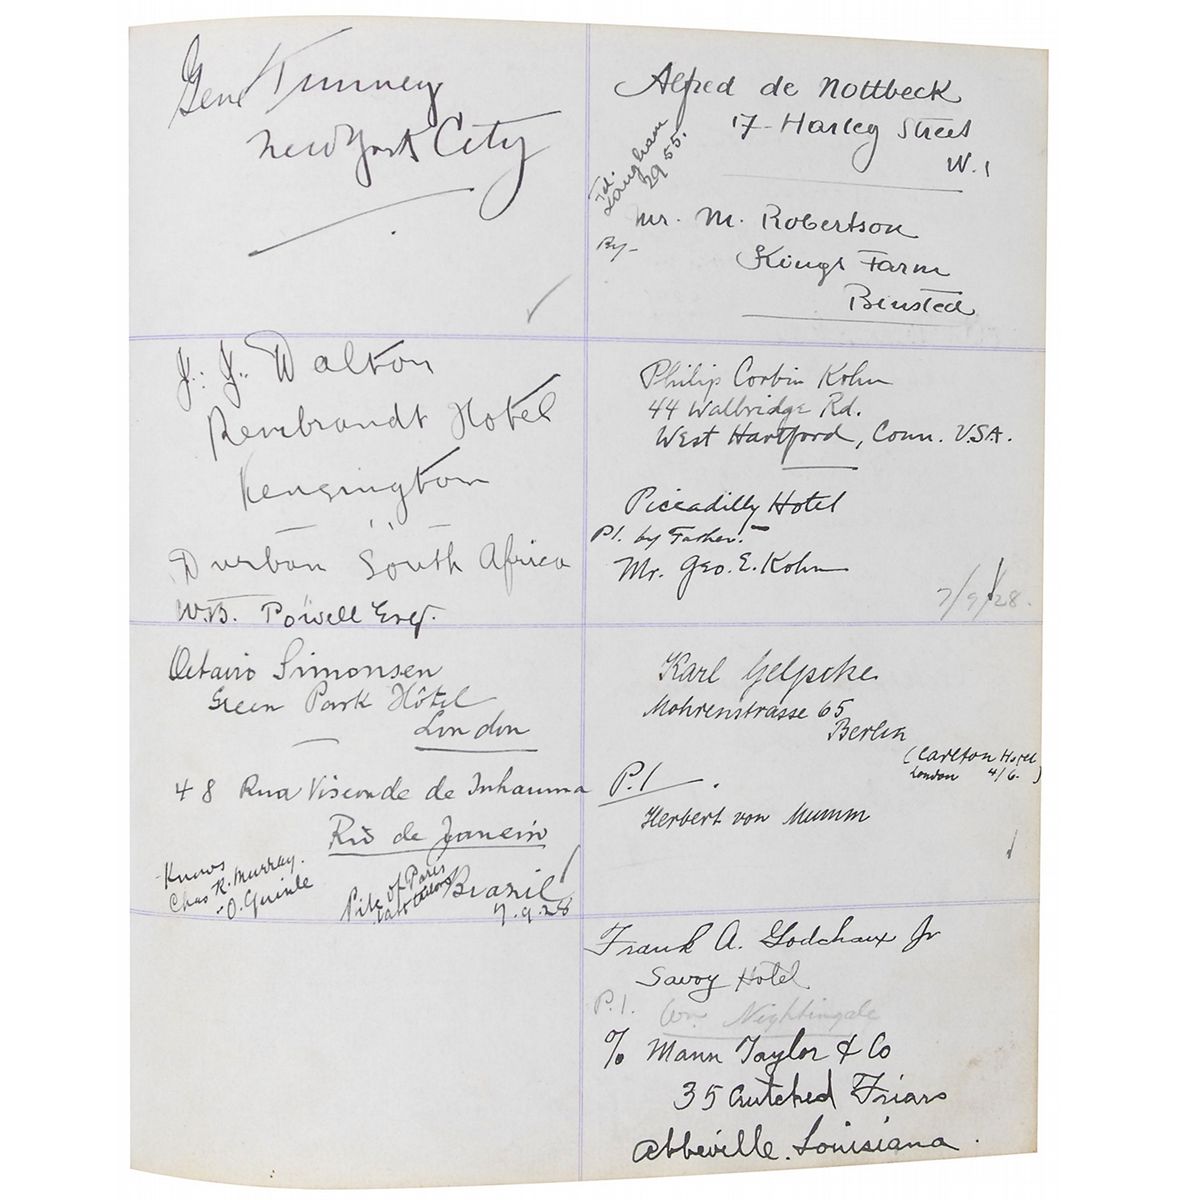 Gene Tunney
New York City
Alfred de Nottbeck
17 Harley Street
W.1
Tel. Langham
2955.
Mr. M. Robertson
By-
Kings Farm
Binsted
J. J. Walton
Rembrandt Hotel
Kensington
Durban South Africa
W.B. Powell Esq.
Philip Corbin Kohn
44 Walbridge Rd.
West Hartford, Conn. U.S.A.
Piccadilly Hotel
P.I. by Father.
Mr. Geo. E. Kohn
7/9/28.
Octavio Simonsen
Green Park Hôtel
London
48 Rua Visconde de Inhauma
Rio de Janeiro
Brazil
7.9.28
Knows
Chas R. Murray.
-O. Guinle
Pile of Paris
Karl Gelpcke
Mohrenstrasse 65
Berlin
(Carlton Hotel
London 4/6.)
P.I.
Herbert von Mumm
Frank A. Godchaux Jr
Savoy Hotel
P.I. Wm Nightingale
% Mann Taylor & Co
35 Crutched Friars
Abbeville. Louisiana.